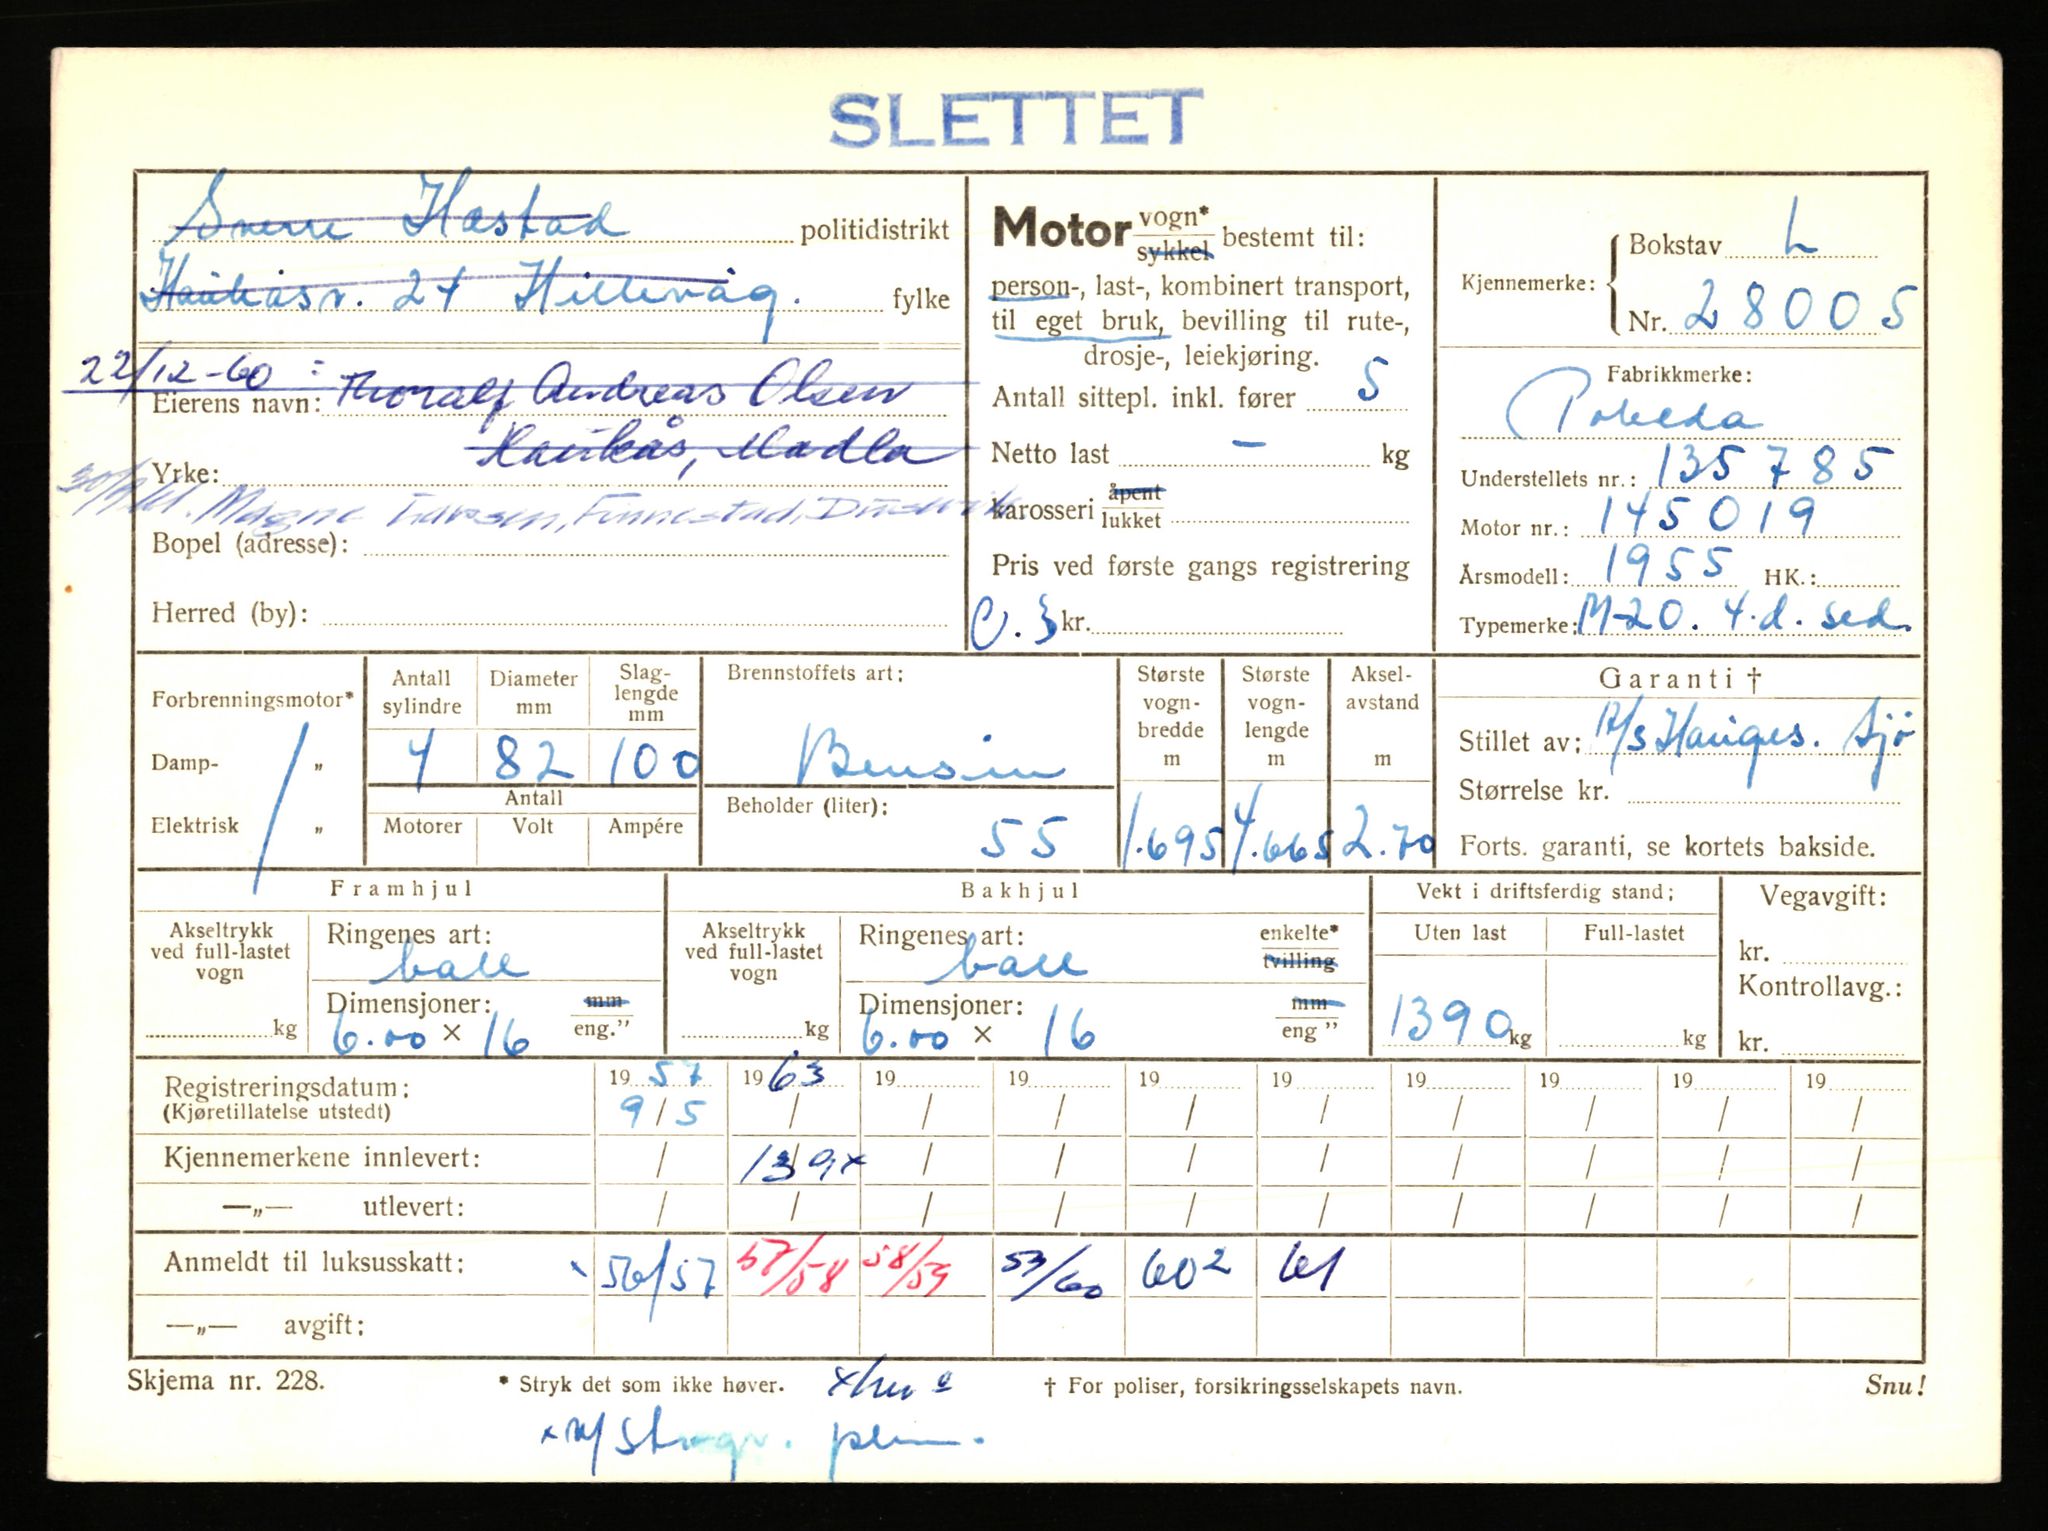 SLETTET
Sverre Hastad politidistrikt
Haukåsv. 24 Hillevåg. fylke
22/12-60 : Thoralf Andreas Olsen
Eierens navn:
Haukås, Madla
Yrke:
Magne Larsen, Finnestad, Dusavik
Bopel (adresse):
Herred (by):
Motor vogn* sykkel bestemt til:
person-, last-, kombinert transport,
til eget bruk, bevilling til rute-,
drosje-, leiekjøring.
Antall sittepl. inkl. fører 5
Netto last – kg
karosseri åpent lukket
Pris ved første gangs registrering
kr.
Kjennemerke: Bokstav L
Nr. 28005
Fabrikkmerke:
Pobeda
Understellets nr.: 135785
Motor nr.: 145019
Årsmodell: 1955 HK.:
Typemerke: M-20. 4.d. sed.
Forbrenningsmotor*
Damp- „
Elektrisk „
Antall sylindre Diameter mm Slag-lengde mm
4 82 100
Antall
Motorer Volt Ampére
Brennstoffets art:
Bensin
Beholder (liter):
55
Største vogn-bredde m Største vogn-lengde m Aksel-avstand m
1.695 4.665 2.70
Garanti †
Stillet av: A/s Hauges. Sjø
Størrelse kr.
Forts. garanti, se kortets bakside.
Framhjul
Akseltrykk ved full-lastet vogn
kg
Ringenes art:
ball
Dimensjoner: mm
6.00 × 16 eng.”
Bakhjul
Akseltrykk ved full-lastet vogn
kg
Ringenes art: enkelte*
ball tvilling
Dimensjoner: mm
6.00 × 16 eng ”
Vekt i driftsferdig stand:
Uten last Full-lastet
1390 kg kg
Vegavgift:
kr.
Kontrollavg.:
kr.
Registreringsdatum: 19 57 19 63 19 19 19 19 19 19 19 19
(Kjøretillatelse utstedt) 9/5 / / / / / / / / /
Kjennemerkene innlevert: / 13/9x / / / / / / / /
—„— utlevert: / / / / / / / / / /
Anmeldt til luksusskatt: 56/57 57/58 58/59 59/60 60 2 61
—„— avgift:
Skjema nr. 228. * Stryk det som ikke høver. † For poliser, forsikringsselskapets navn. Snu!